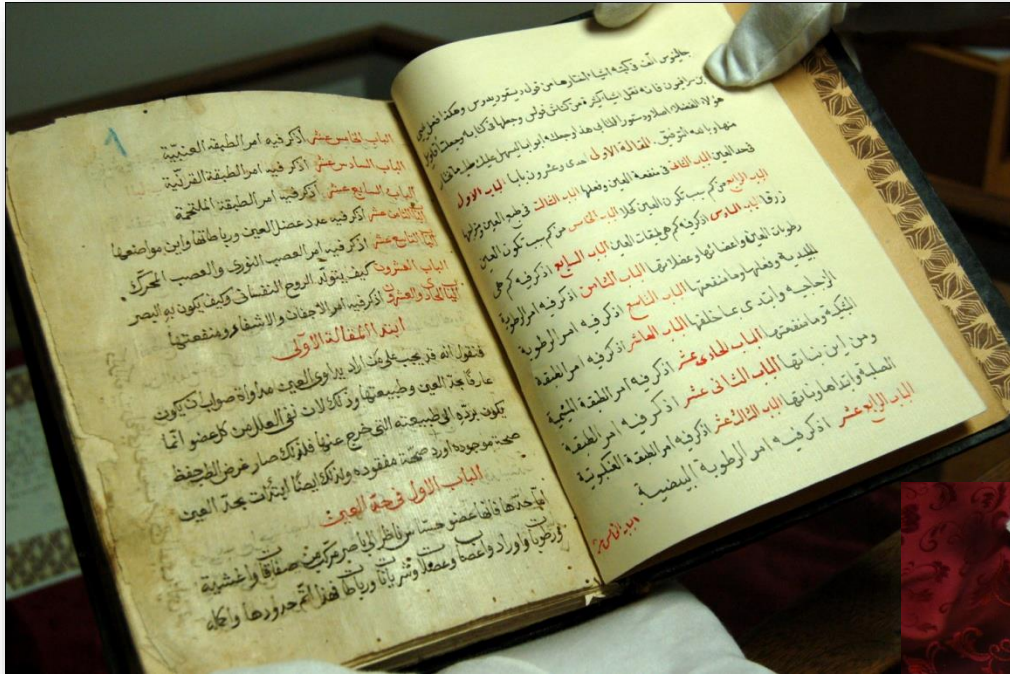 جالينوس الفت فى كتبه اشيا امتازها من قول ديسقوريدوس وهكذا فعل
بن سرافيون فانه نقل اشيا كثيرة من كناش فولس وجعلها فى كتابه وجعلت اقاويل
هولاء الفضلاء اصلا ودستورا لكتابى هذا وجعلته ابوابا ليسهل عليك طلب ما تختار
منها وبالله التوفيق المقالة الاولى احدى وعشرون بابا الباب الاول
فى حد العين الباب الثانى فى منفعة العين وفعلها الباب الثالث فى طبع العين ومزاجها
الباب الرابع من كم سبب تكون العين كحلا الباب الخامس من كم سبب تكون العين
زرقا الباب السادس اذكر فيه كم هى طبقات العين الباب السابع اذكر فيه كم هى
رطوبات العين واعضائها وعضلاتها الباب الثامن اذكر فيه امر الرطوبة
الجليدية وفعلها وما منفعتها الباب التاسع اذكر فيه امر الرطوبة
الزجاجيه وابتدى بما خلفها الباب العاشر اذكر فيه امر الطبقة
الشبكيه وما منفعتها الباب الحادى عشر اذكر فيه امر الطبقة المشيمية
ومن اين نباتها الباب الثانى عشر اذكر فيه امر الطبقة
الصلبة وابتداها ونباتها الباب الثالث عشر اذكر فيه امر الطبقة العنكبوتية
الباب الرابع عشر اذكر فيه امر الرطوبة البيضية
الباب الخامس عشر
1
الباب الخامس عشر اذكر فيه امر الطبقة العنبية
الباب السادس عشر اذكر فيه امر الطبقة القرنية
الباب السابع عشر اذكر فيه امر الطبقة الملتحمة
الباب الثامن عشر اذكر فيه عدد عضل العين ورباطاتها واين مواضعها
الباب التاسع عشر اذكر فيه امر العصب النورى والعصب المحرك
الباب العشرون كيف يتولد الروح النفسانى وكيف يكون به البصر
الباب الحادى والعشرون اذكر فيه امر الاجفان والاشفار ومنفعتها
ابتدا المقالة الاولى
فنقول انه قد يجب على من اراد يداوى العين مداواة صواب ان يكون
عارفا بحد العين وطبيعتها وذلك لان نفى العلل من كل عضو انما
يكون برده الى طبيعته التى خرج عنها فلذلك صار غرض الطب حفظ
صحة موجوده او رد صحة مفقوده ولذلك ايضا ابتدات بحد العين
الباب الاول فى حد العين
اما حدها فانها عضو حساس ناظر الى باصر مركب من صفاقات واغشية
ورطوبات واوراد واعصاب وعضلات وشريانات ورباطات فهذا اتم حدودها